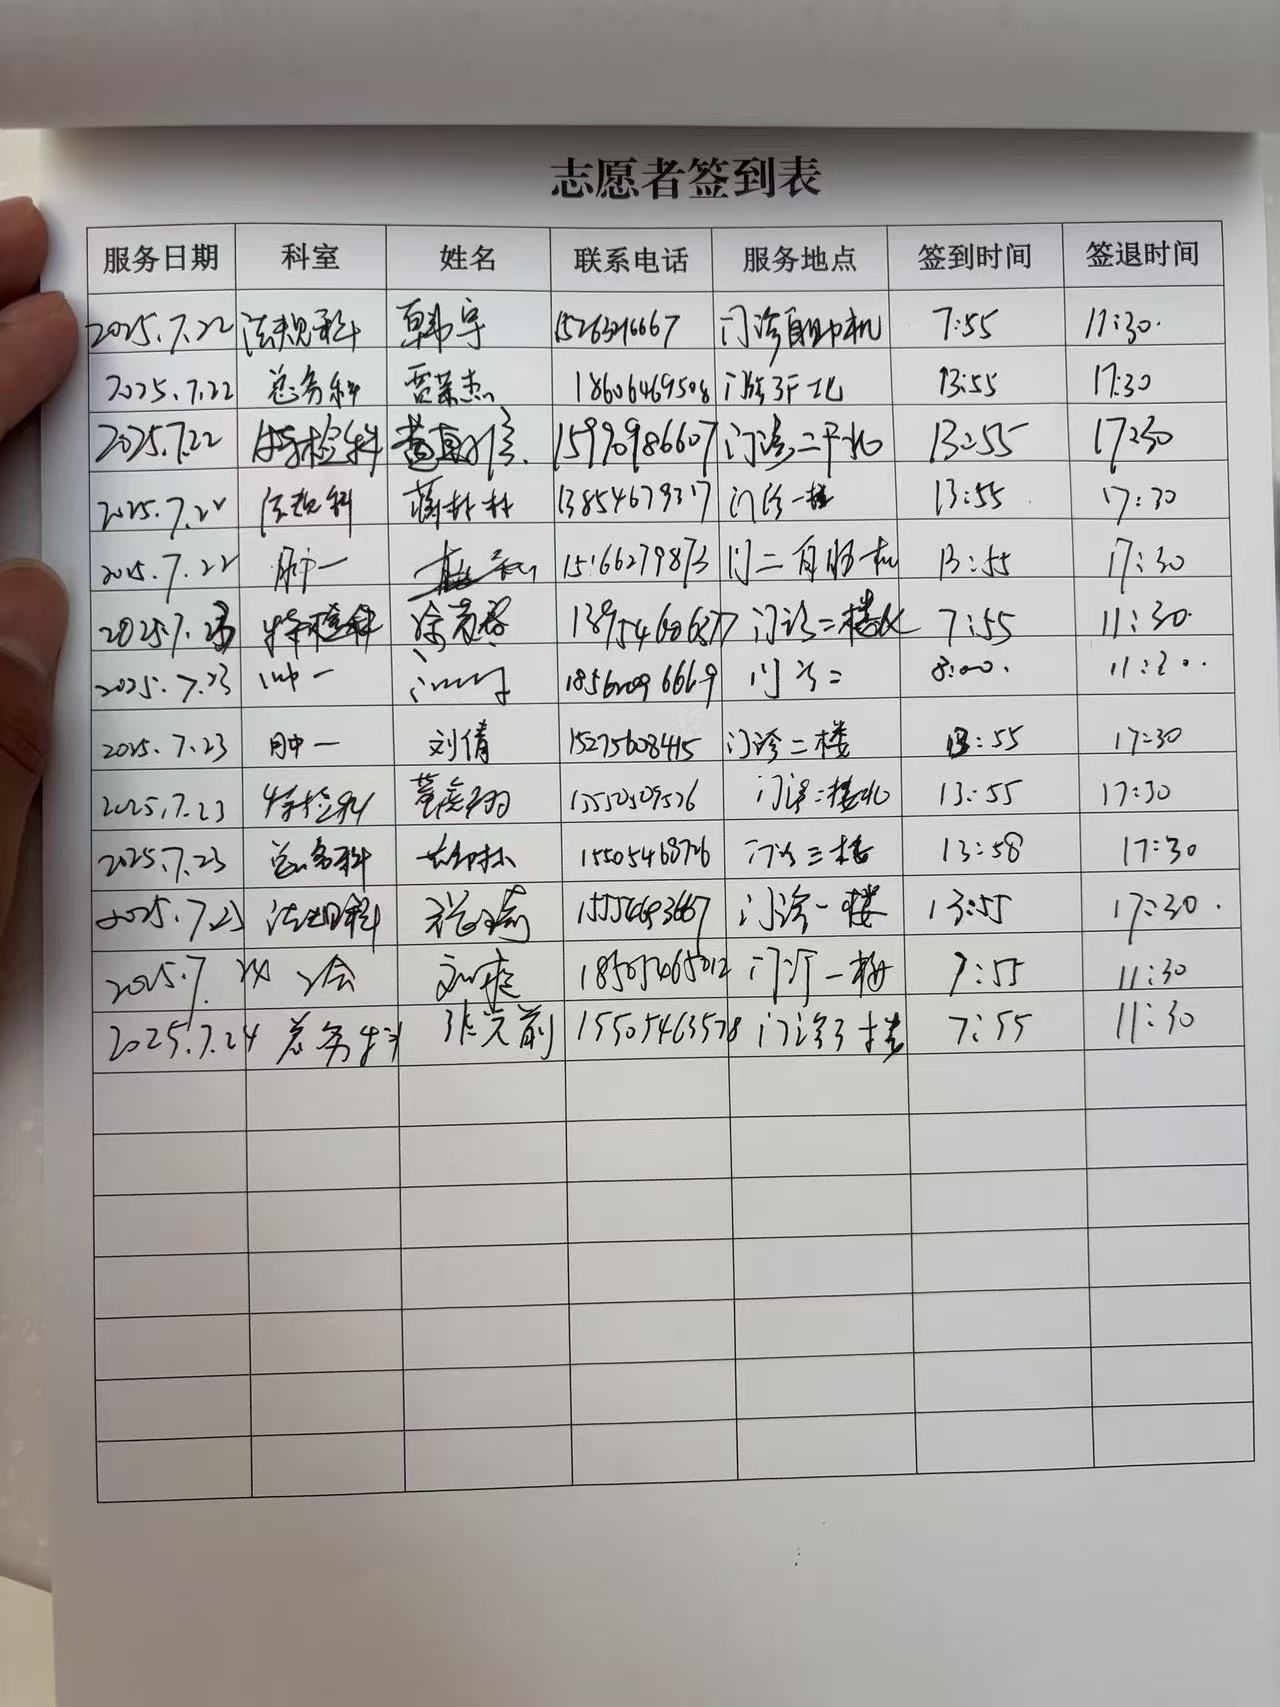 志愿者签到表
服务日期 科室 姓名 联系电话 服务地点 签到时间 签退时间
2025.7.22 法规科 韩宇 门诊自助机 7:55 11:30.
2025.7.22 总务科 贾荣杰 18606469508 13:55 17:30
2025.7.22 特检科 15990986607 门诊二平北 13:55 17:30
2025.7.22 法规科 13854679317 门诊一楼 13:55 17:30
2025.7.22 肿一 15166279873 门二自助机 13:55 17:30
2025.7.23 特检科 门诊二楼北 7:55 11:30.
2025.7.23 肿一 门诊二 8:00. 11:30.
2025.7.23 肿一 刘倩 15275608415 门诊二楼 13:55 17:30
2025.7.23 特检科 13550509536 门诊二楼北 13:55 17:30
2025.7.23 总务科 15505468726 门诊三楼 13:58 17:30
2025.7.23 15554693667 门诊一楼 13:55 17:30.
2025.7.24 18505465012 7:55 11:30
2025.7.24 总务科 张光前 15505463578 门诊3楼 7:55 11:30